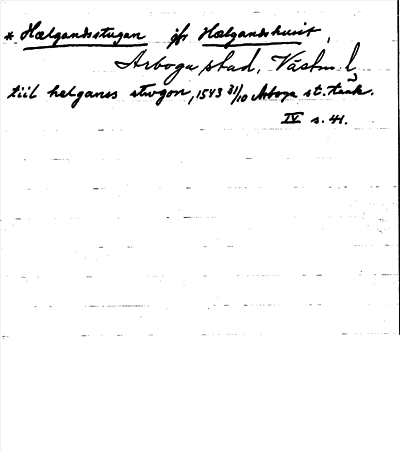 * Hælgandsstugan jfr Hælgandshuset,
Arboga stad, Västm l
tiil helganss stwgon, 1543 31/10 Arboga st. tänk.
IV s. 41.